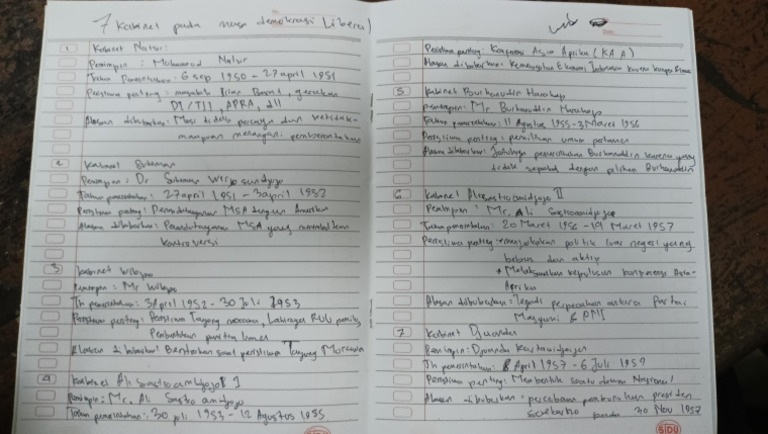 7 Kabinet pada masa demokrasi Liberal
1 Kabinet Natsir:
Pemimpin: Muhamad Natsir
Tahun Pemerintahan: 6 sep 1950 - 27 april 1951
Peristiwa penting: masalah Irian Barat, gerakan
DI/TII, APRA, dll
Alasan dibubarkan: Mosi tidak percaya dan ketidak-
mampuan menangani pemberontakan
2 Kabinet Sukiman
Pemimpin: Dr Sukiman Wirjosandjojo
Tahun pemerintahan: 27 april 1951 - 3 april 1952
Peristiwa penting: Penandatanganan MSA dengan Amerika
Alasan dibubarkan: Penandatanganan MSA yang menimbulkan
kontroversi
3 Kabinet Wilopo
Pemimpin: Mr Wilopo
Th pemerintahan: 3 April 1952 - 30 Juli 1953
Peristiwa penting: Peristiwa Tanjung morawa, Lahirnya RUU pemilu,
Alasan dibubarkan: Berkaitan soal peristiwa Tanjung Morawa
4 Kabinet Ali Sastroamidjojo I
Pemimpin: Mr. Ali Sastro amidjojo
Tahun pemerintahan: 30 juli 1953 - 12 Agustus 1955
Peristiwa penting: Konferensi Asia Afrika (KAA)
Alasan dibubarkan: Ekonomi Indonesia karena korupsi
5 Kabinet Burhanudin Harahap
pemimpin: Mr. Burhanuddin Harahap
Tahun pemerintahan: 11 Agustus 1955 - 3 Maret 1956
Peristiwa penting: pemilihan umum pertama
Alasan dibubarkan: Jatuhnya pemerintahan Burhanuddin karena yang
tidak sepakat dengan pilihan Burhanuddin
6 Kabinet Ali Sastroamidjojo II
Pemimpin: Mr. Ali Sastroamidjojo
Tahun pemerintahan: 20 Maret 1956 - 19 Maret 1957
Peristiwa penting: menjalankan politik luar negeri yang
bebas dan aktif
* Melaksanakan keputusan konferensi Asia-
Afrika
Alasan dibubarkan: terjadi perpecahan antara Partai
Masyumi & PNI
7 Kabinet Djuanda
Pemimpin: Djuanda Kartawidjaja
Th pemerintahan: 8 April 1957 - 6 Juli 1959
Peristiwa penting: Membentuk suatu dewan Nasional
Alasan dibubarkan: percobaan pembunuhan presiden
Soekarno pada 30 Nov 1957
SIDU